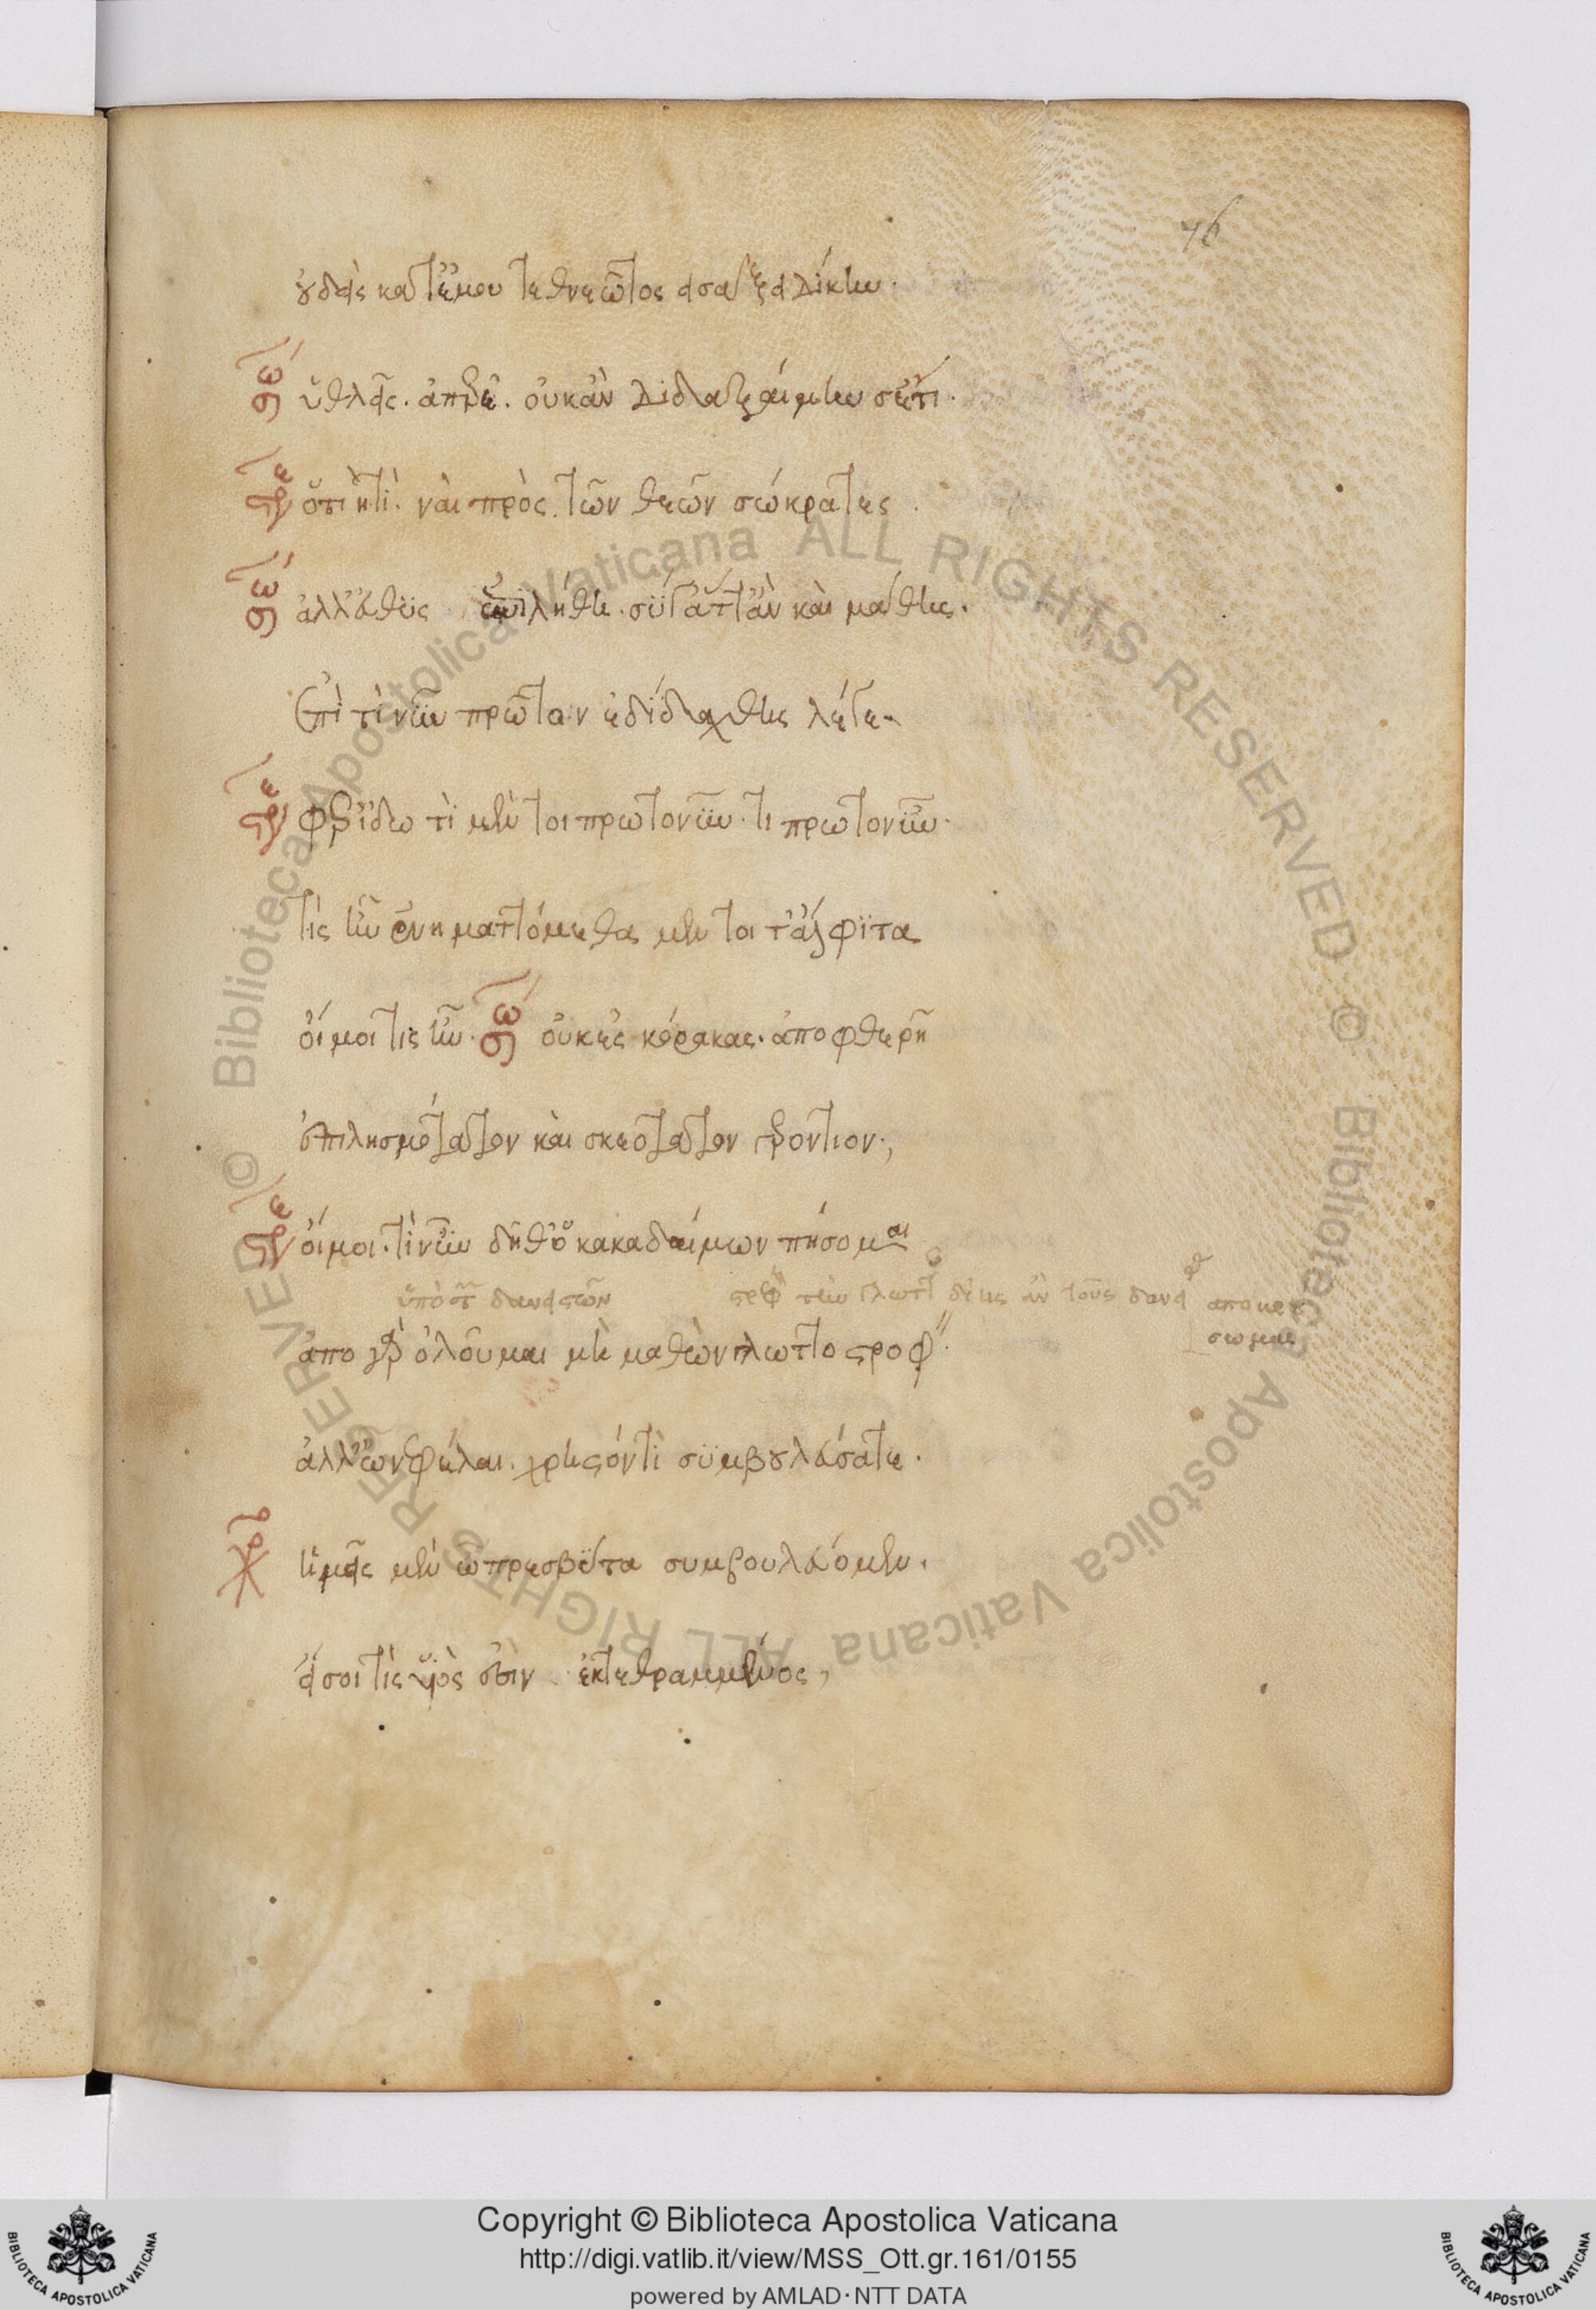 76
οὐδεὶς κατ' ἐμοῦ τεθνεῶτος εἰσάξει δίκην.
σω ὑθλεῖς. ἄπερρε. οὐκ ἂν διδαξαίμην σ' ἔτι.
στρε ὁτιὴ τί. ναὶ πρὸς τῶν θεῶν σώκρατες.
σω ἀλλ' εὐθὺς ἐπιλήθη σύ γ' ἅττ' ἂν καὶ μάθης.
ἐπὶ τί νῦν πρῶτον ἐδιδάχθης λέγε.
στρε φέρ' ἴδω τί μέν τοι πρῶτον ἦν. τί πρῶτον ἦν.
τίς ἦν ἐν ᾗ ματτόμεθα μέν τοι τἄλφιτα
οἴμοι τίς ἦν. σω οὐκ ἐς κόρακας. ἀποφθερῆ
ἐπιλησμότατον καὶ σκαιότατον γερόντιον;
στρε οἴμοι. τί νῦν δῆθ' ὁ κακοδαίμων πείσομαι
ὑπὸ τῶν δανειστῶν
ἀπὸ γὰρ ὀλοῦμαι μὴ μαθὼν γλωττοστροφ
ἀλλ' ὦ νεφέλαι. χρηστόν τι συμβουλεύσατε.
χο ἡμεῖς μὲν ὦ πρεσβῦτα συμβουλεύομεν.
εἴ σοι τις υἱός ἐστιν ἐκτεθραμμένος,
Copyright © Biblioteca Apostolica Vaticana
http://digi.vatlib.it/view/MSS_Ott.gr.161/0155
powered by AMLAD·NTT DATA
BIBLIOTECA APOSTOLICA VATICANA
BIBLIOTECA APOSTOLICA VATICANA
© Biblioteca Apostolica Vaticana ALL RIGHTS RESERVED
© Biblioteca Apostolica Vaticana ALL RIGHTS RESERVED